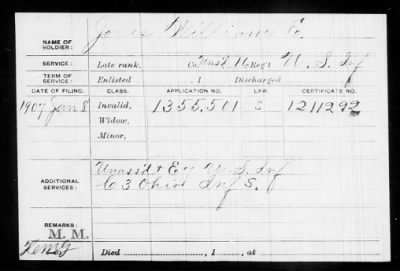 NAME OF SOLDIER: Jones William E.
SERVICE: Late rank, Co. 16 Reg't U. S. Inf
TERM OF SERVICE: Enlisted , 1 Discharged
DATE OF FILING. CLASS. APPLICATION NO. LAW. CERTIFICATE NO.
1907 Jan 8 Invalid, 1355,501 S 1211292
Widow,
Minor,
ADDITIONAL SERVICES: Unass'd + E 7 U.S. Inf
C 3 Ohio Inf S.
REMARKS:
M. M.
Died , 1 , at